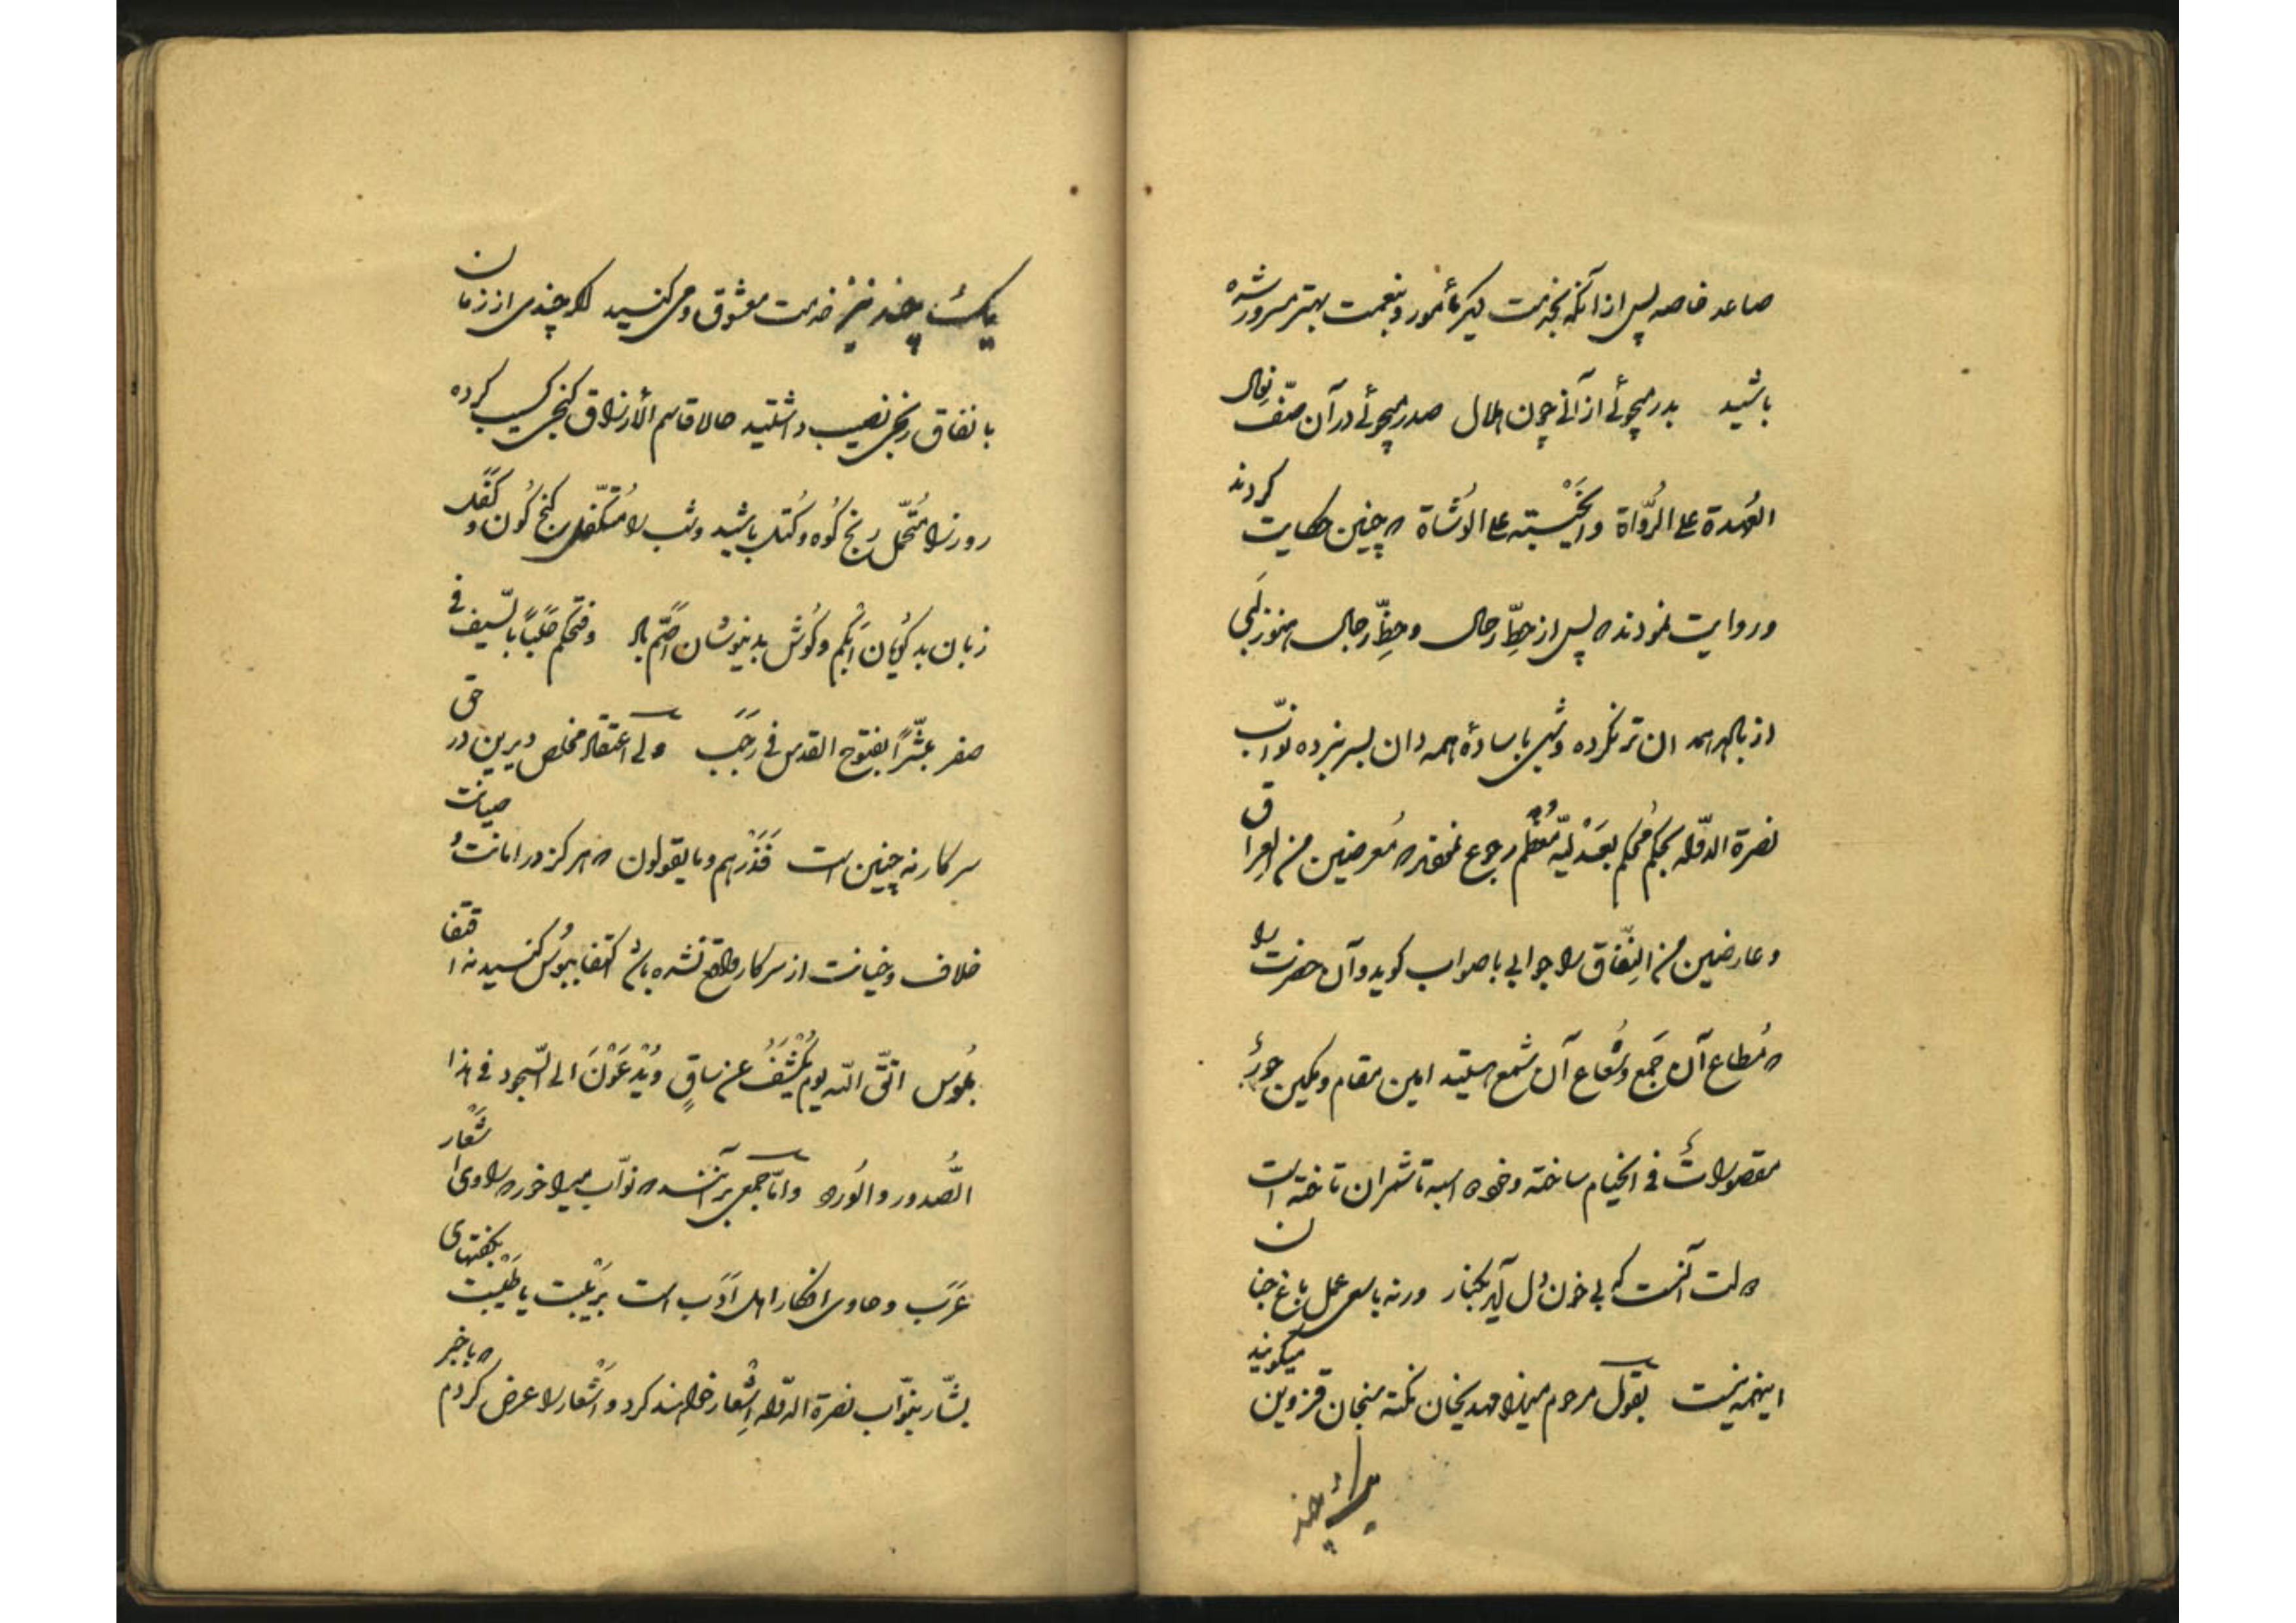 صاعد خاصه پس از آنکه بخدمت دیگر مأمور و بنعمت بهتر مسرور شده
باشید بدر میجوئی از آنی چون هلال صدر میجوئی در آن صفّ نعال
العُهدة علی الرُّواة و علی الوُشاة که چنین حکایت کردند
و روایت نمودند که پس از حطِّ رحال و حظِّ رجال هنوز لبی
از باده همدان تر نکرده و شبی با ساده همدان بسر نبرده نوّاب
نصرة الدوله بحکم مُحکم بعَدْلیّه مُعظّم رجوع نمودند که مُعرضین من العراق
و عارضین من النِّفاق را جوابی با صواب گوید و آن حضرت را
که مُطاع آن جَمع و شُعاع آن شمع هستید امین مقام و مکین حورٌ
مقصوراتٌ فی الخیام ساخته و خود اسبه تا شمران تاخته است
دولت آنست که بی خون دل آید بکنار ورنه با سعی عمل باغ جنان
اینهمه نیست بقول مرحوم میرزا مهدیخان نکته سنجان قزوین میگویند
یک چند
یک چند نیز خدمت معشوق و می کنید اگر چندی از زمان
با نفاق رنجی نصیب داشتید حالا قاسم الأرزاق گنجی کسیب کرده
روز را مُتحمّل رنج کُوه و کُتل باشید و شب را مُتکفّل گنج کُون و کَفَل
زبان بدگویان اَبکم و گوش بدنیوشان اَصَمّ باد و فتحکم حَلَباً بالسّیف فی
صفر مبشّراً بفتوح القدس فی رَجَب ولی اعتقاد مخلص دیرین در حق
سرکار نه چنین است فَذَرْهم و ما یقولون که هرگز در امانت و صیانت
خلاف و خیانت از سرکار واقع نشده باشد اکتفا ببُوس کنید نه اقتفا
بلُوس اتّق اللّه یوم یُکْشَفُ عن ساقٍ و یُدْعَوْنَ الی السّجود فی هذا
الصُّدور و الوُرود و امّا جمعی برآنند که نوّاب میرآخور که راوی اَشْعار
عَرَب و حاوی افکار اهل اَدَب است بگفتهای
بشّار بنوّاب نصرة الدّوله اِشْعار خواهند کرد و اَشْعار را عرض کردم که باخبر